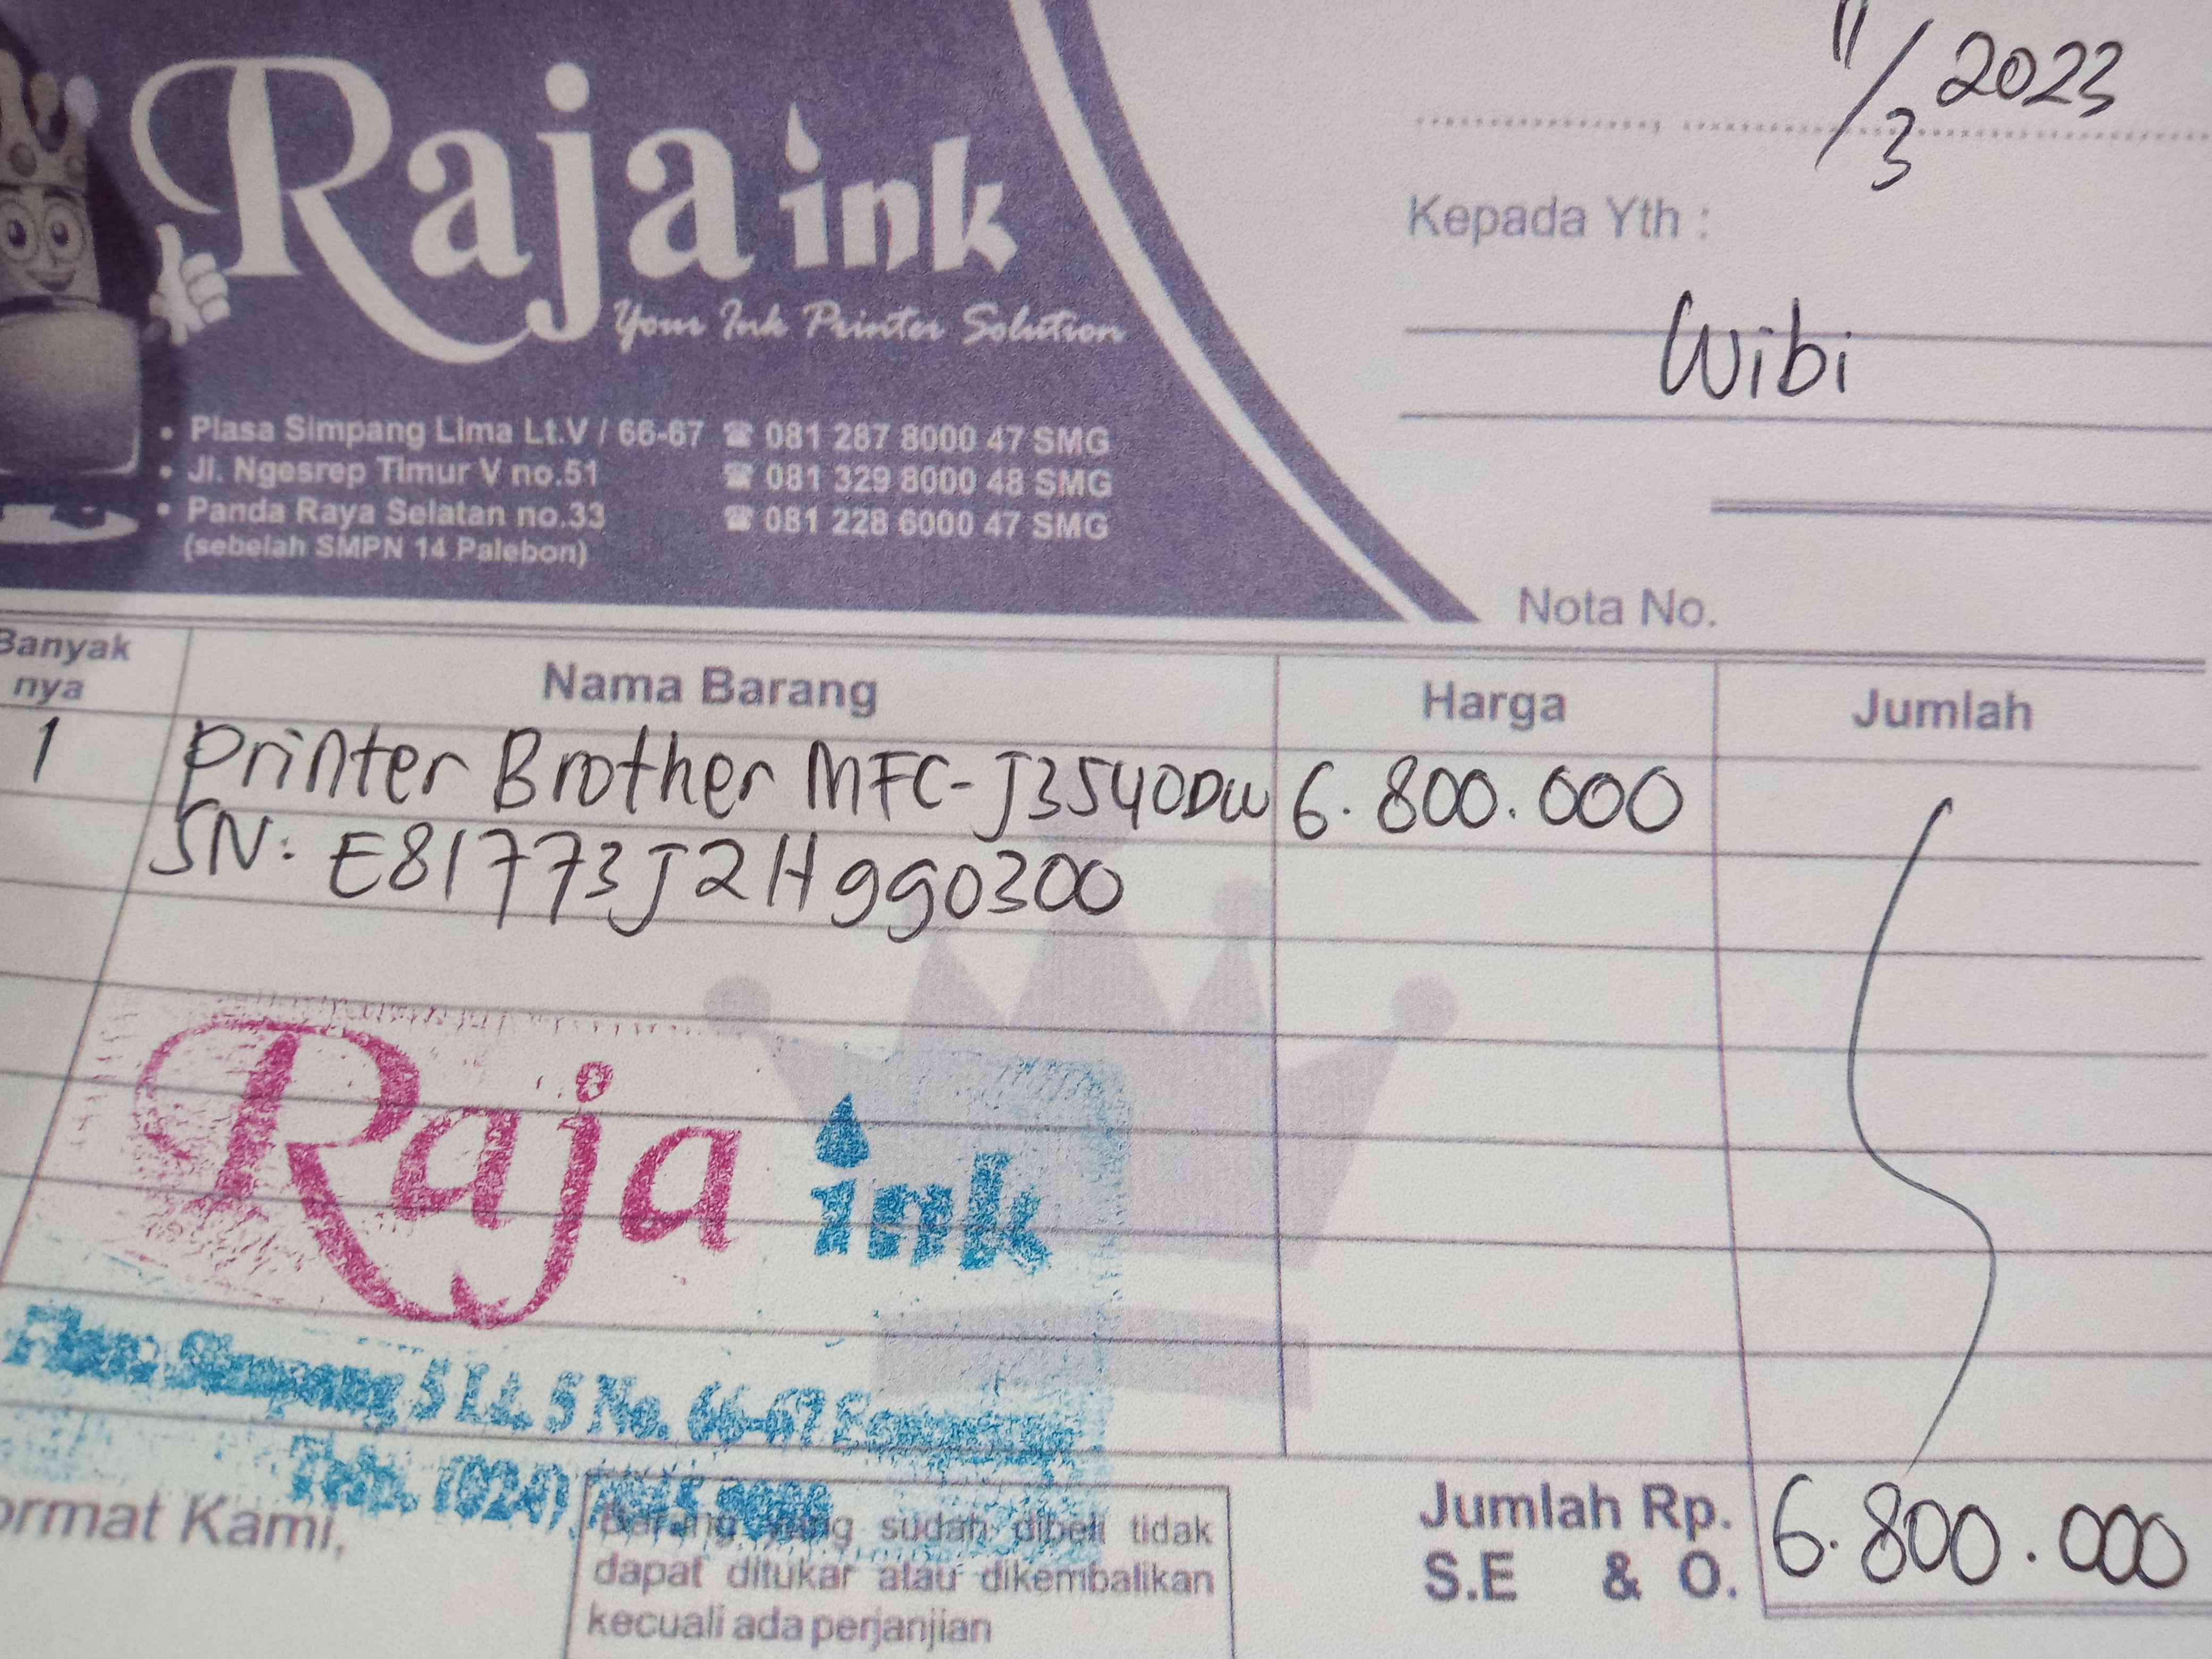 Raja ink
Your Ink Printer Solution
• Plasa Simpang Lima Lt.V / 66-67 ☎ 081 287 8000 47 SMG
• Jl. Ngesrep Timur V no.51 ☎ 081 329 8000 48 SMG
• Panda Raya Selatan no.33 ☎ 081 228 6000 47 SMG
(sebelah SMPN 14 Palebon)
11/3 2023
Kepada Yth :
Wibi
Nota No.
Banyak nya Nama Barang Harga Jumlah
1 Printer Brother MFC-J3540DW 6.800.000
SN: E81773J2H990300
Raja ink
Plasa Simpang 5 Lt. 5 No. 66-67
Telp. (024)
ormat Kami,
Barang yang sudah dibeli tidak
dapat ditukar atau dikembalikan
kecuali ada perjanjian
Jumlah Rp. 6.800.000
S.E & O.